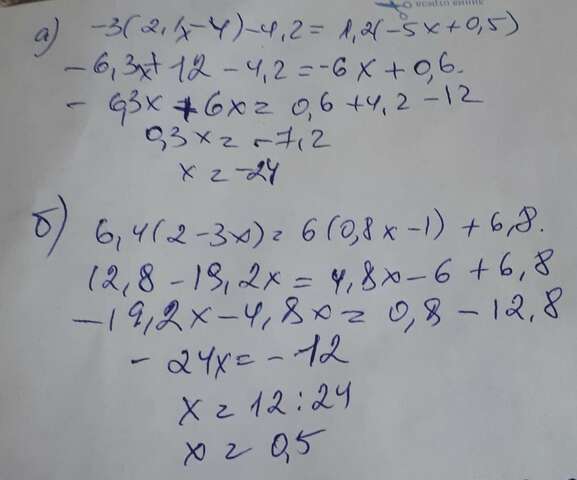 а) -3(2,1x-4)-4,2=1,2(-5x+0,5)
-6,3x+12-4,2=-6x+0,6.
-6,3x+6x=0,6+4,2-12
0,3x=-7,2
x=-24
б) 6,4(2-3x)=6(0,8x-1)+6,8.
12,8-19,2x=4,8x-6+6,8
-19,2x-4,8x=0,8-12,8
-24x=-12
x=12:24
x=0,5